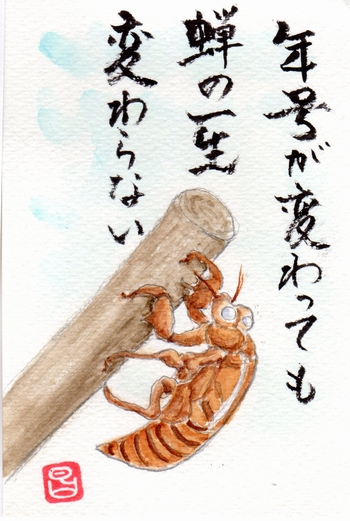 年号が変わっても
蝉の一生
変わらない